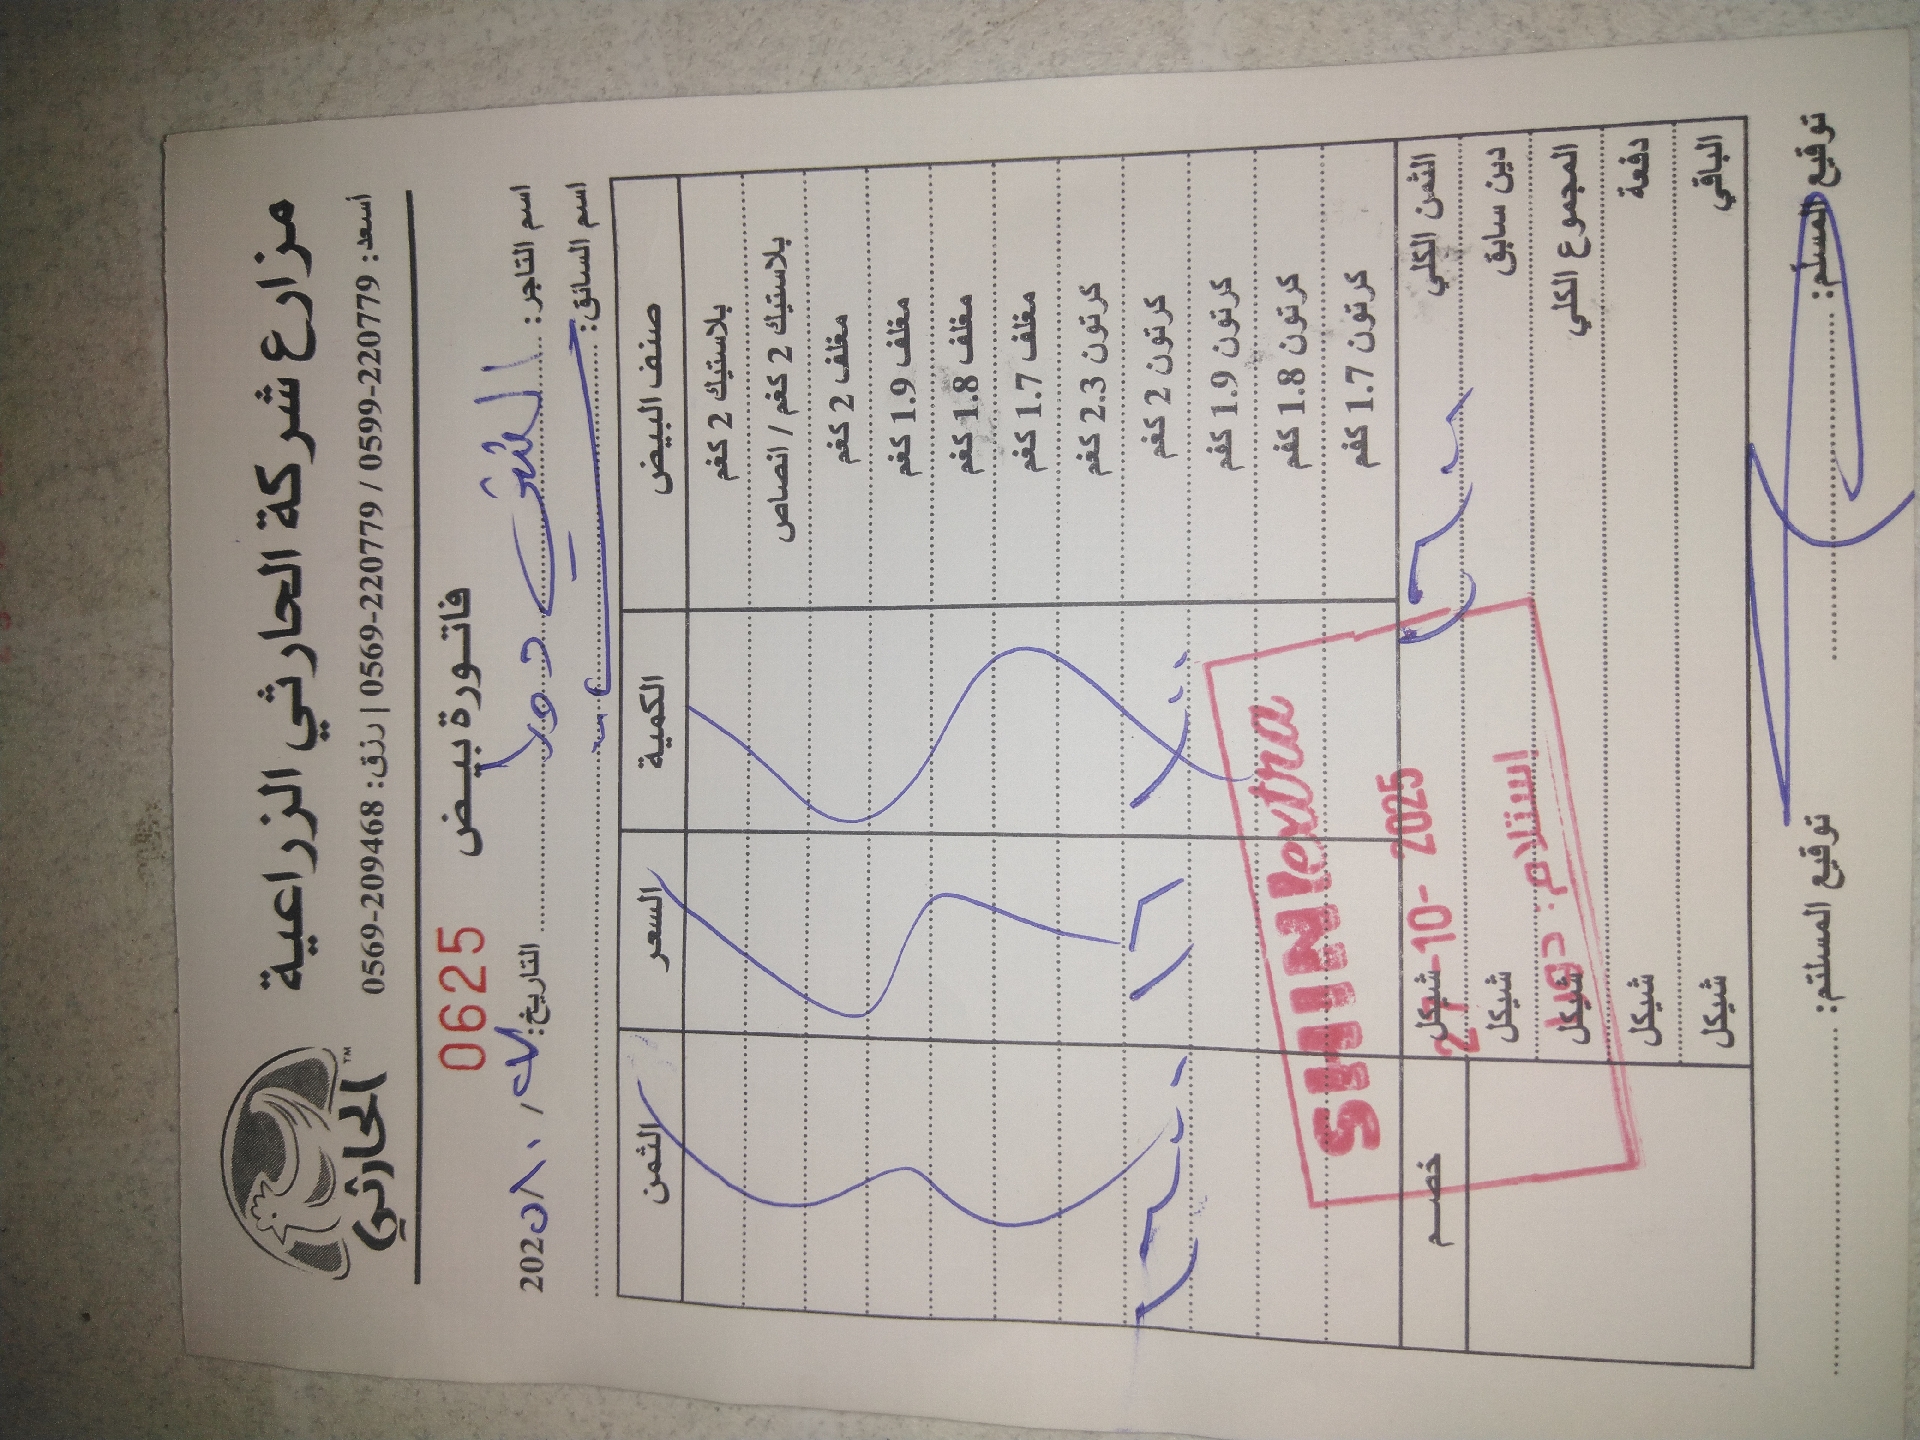 مزارع شركة الحارثي الزراعية
الحارثي TM
أسعد: 0599-220779 / 0569-220779 | رزق: 0569-209468
فاتورة بيض
0625
اسم التاجر:
التاريخ: 2025
اسم السائق:
صنف البيض الكمية السعر الثمن
بلاستيك 2 كغم
بلاستيك 2 كغم / انصاص
مغلف 2 كغم
مغلف 1.9 كغم
مغلف 1.8 كغم
مغلف 1.7 كغم
كرتون 2.3 كغم
كرتون 2 كغم
كرتون 1.9 كغم
كرتون 1.8 كغم
كرتون 1.7 كغم
SHINI extra
الثمن الكلي شيكل خصم
27-10-2025
دين سابق شيكل
استلام: دورا
المجموع الكلي شيكل
دفعة شيكل
الباقي شيكل
توقيع المسلم: توقيع المستلم: